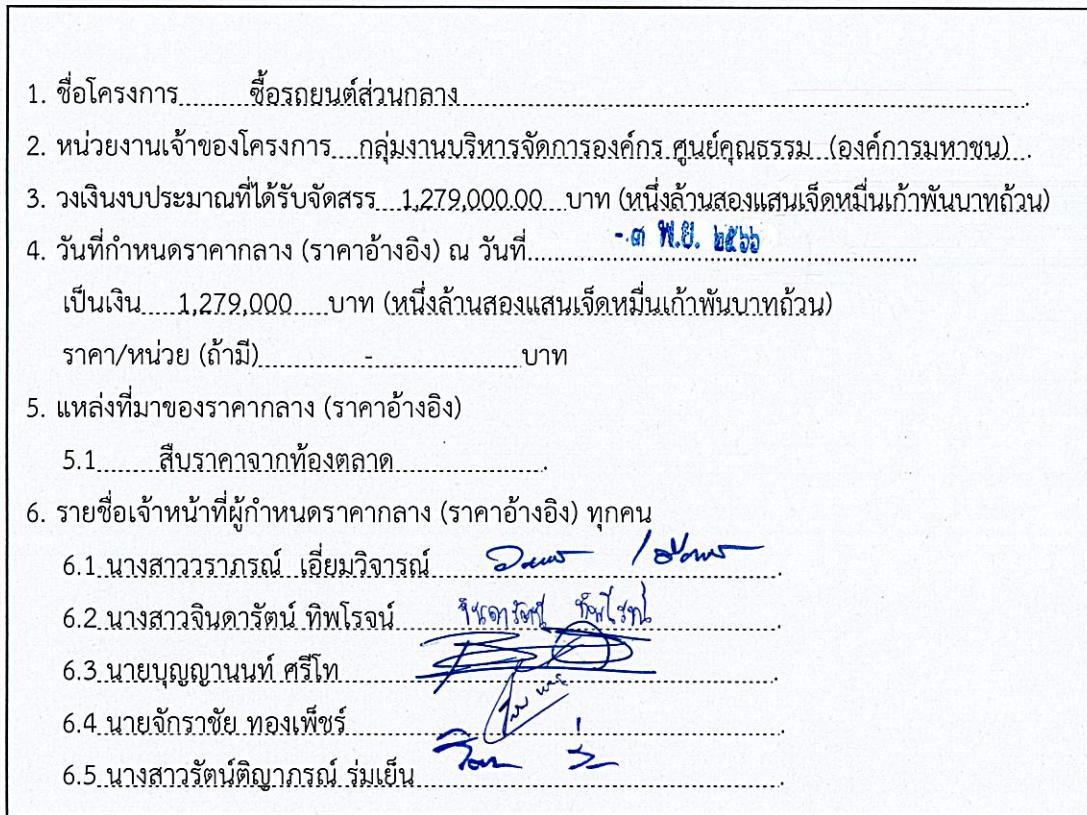 1. ชื่อโครงการ.........ซื้อรถยนต์ส่วนกลาง..........
2. หน่วยงานเจ้าของโครงการ....กลุ่มงานบริหารจัดการองค์กร ศูนย์คุณธรรม (องค์การมหาชน)...
3. วงเงินงบประมาณที่ได้รับจัดสรร....1,279,000.00....บาท (หนึ่งล้านสองแสนเจ็ดหมื่นเก้าพันบาทถ้วน)
4. วันที่กำหนดราคากลาง (ราคาอ้างอิง) ณ วันที่.....- ๓ พ.ย. ๒๕๖๖.....
เป็นเงิน.....1,279,000.....บาท (หนึ่งล้านสองแสนเจ็ดหมื่นเก้าพันบาทถ้วน)
ราคา/หน่วย (ถ้ามี)..........-..........บาท
5. แหล่งที่มาของราคากลาง (ราคาอ้างอิง)
5.1........สืบราคาจากท้องตลาด..........
6. รายชื่อเจ้าหน้าที่ผู้กำหนดราคากลาง (ราคาอ้างอิง) ทุกคน
6.1 นางสาววราภรณ์ เอี่ยมวิจารณ์
6.2 นางสาวจินดารัตน์ ทิพโรจน์ จินดารัตน์ ทิพโรจน์
6.3 นายบุญญานนท์ ศรีโท
6.4 นายจักราชัย ทองเพ็ชร์
6.5 นางสาวรัตน์ติญาภรณ์ ร่มเย็น